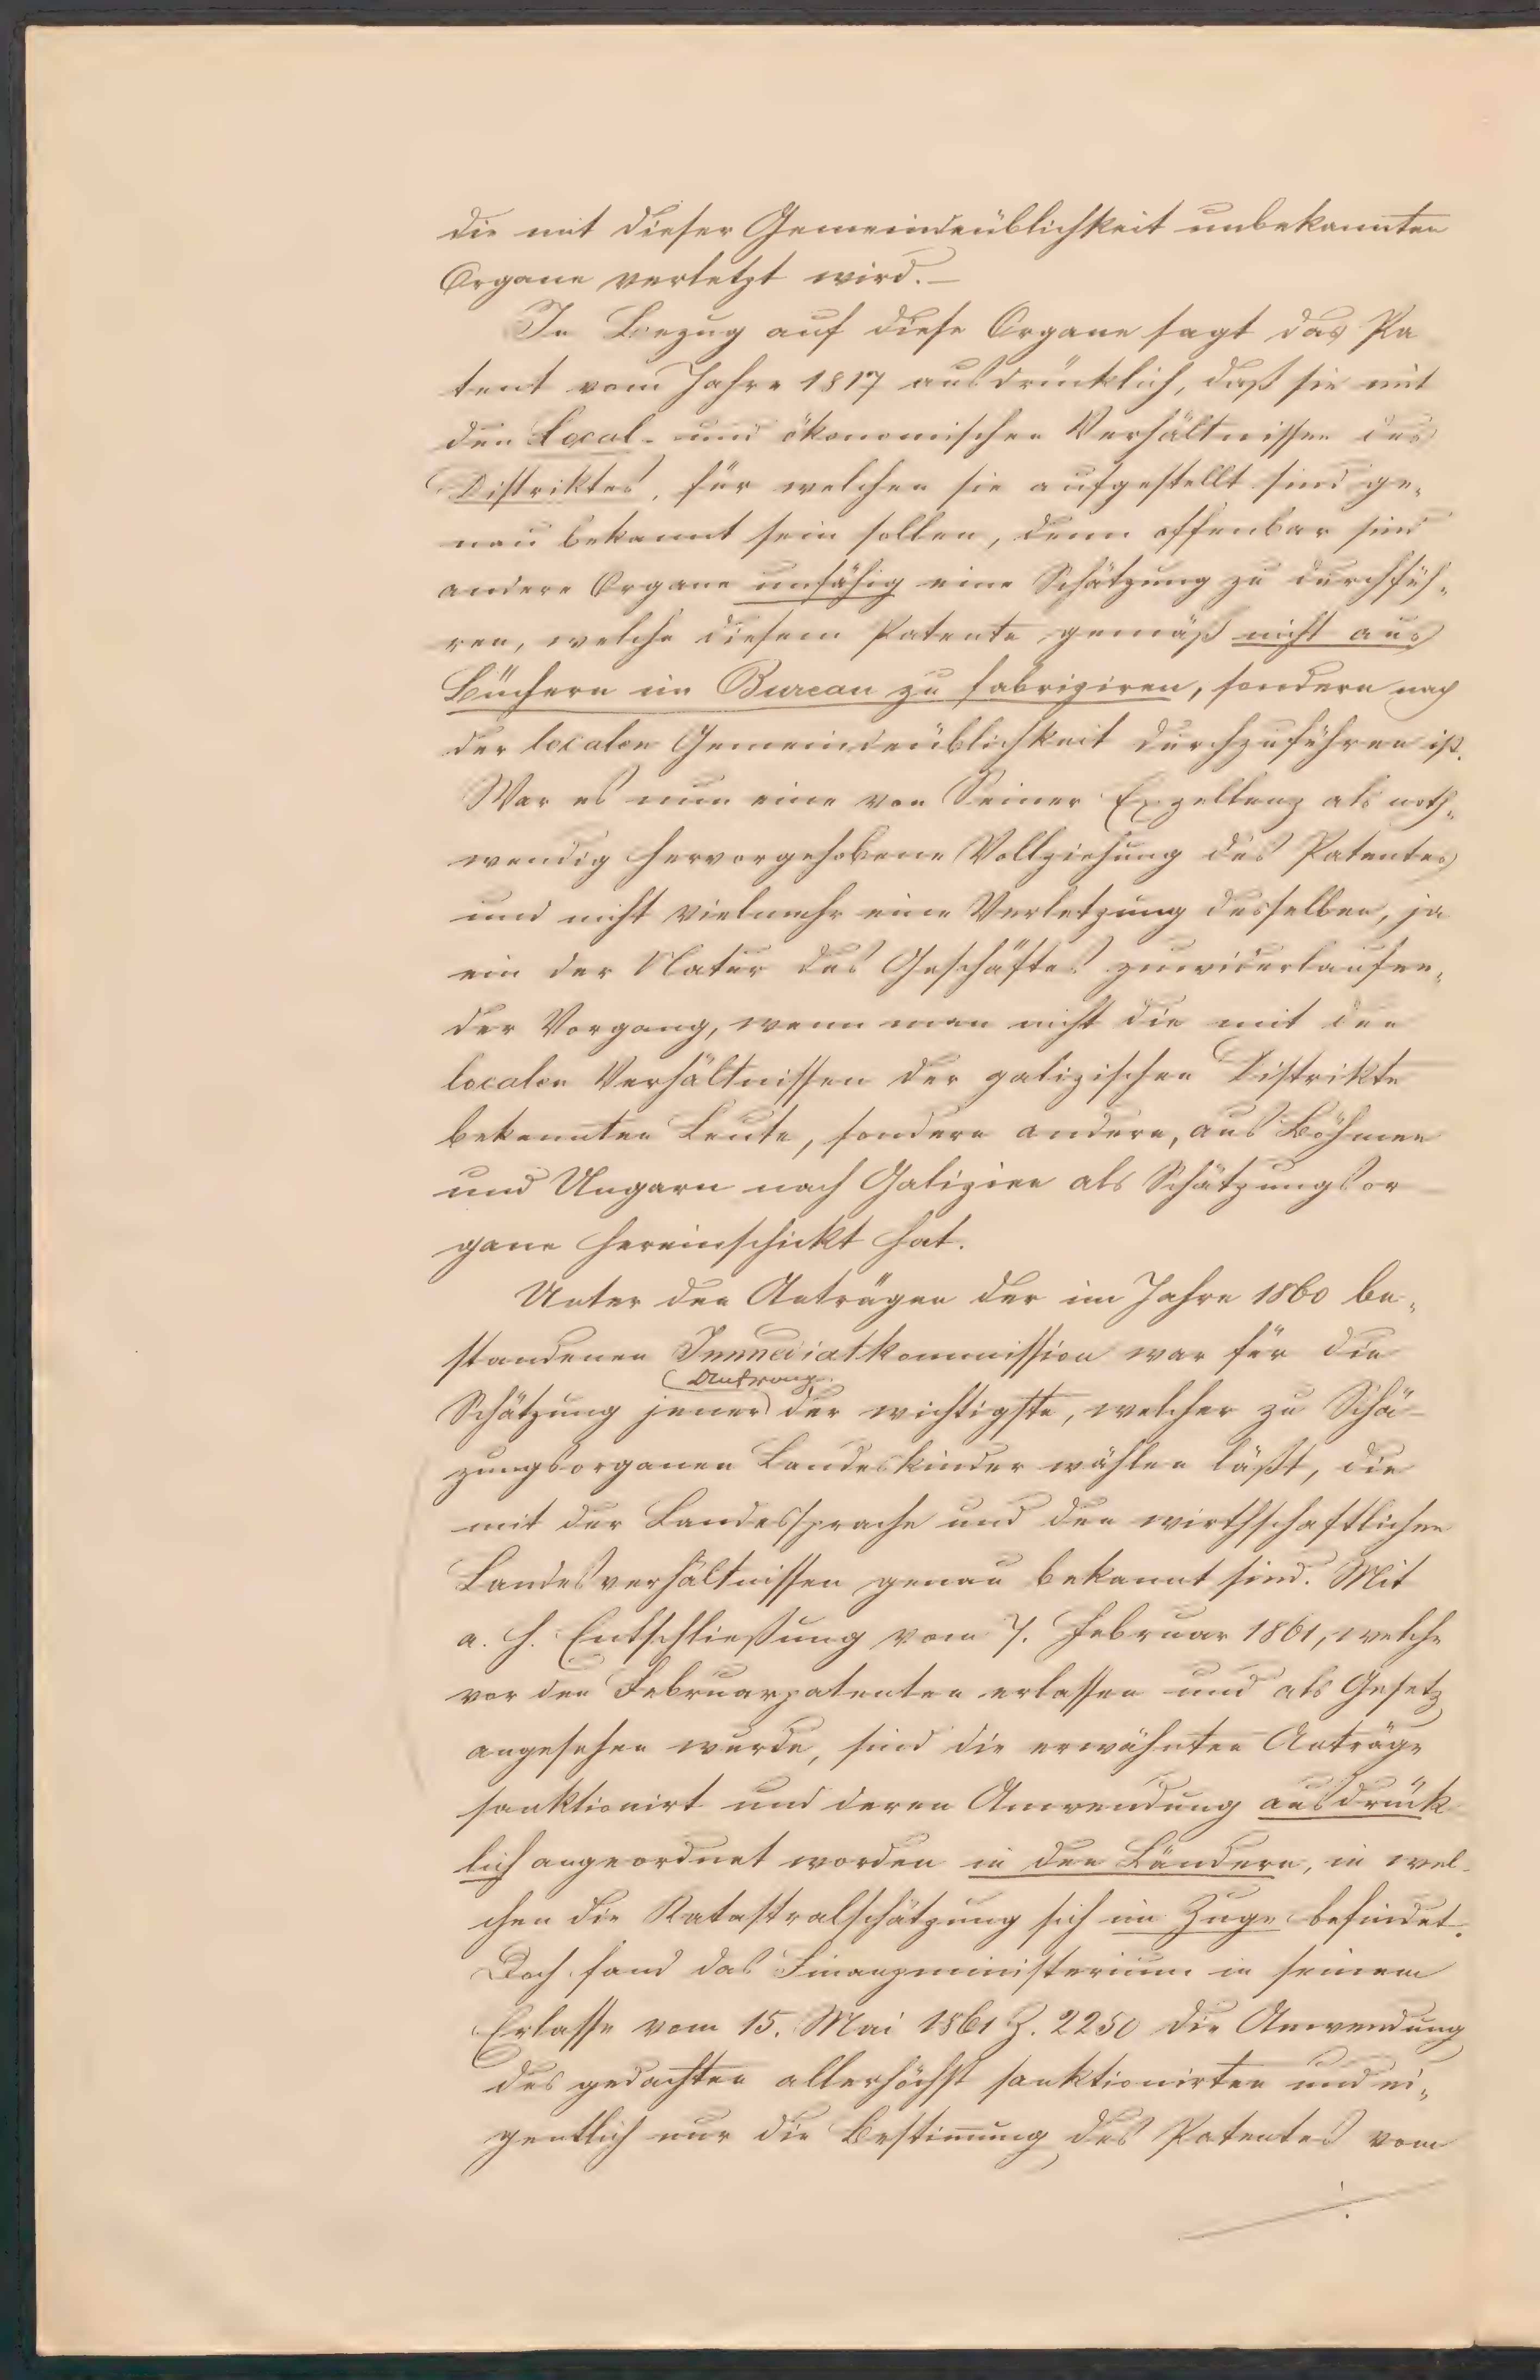 die mit dieser Gemeindeüblichkeit unbekannten
Organe verletzt wird.—
In Bezug auf diese Organe sagt das Pa
tent vom Jahre 1817 ausdrücklich, daß sie mit
den Local- und ökonomischen Verhältnissen des
Distriktes, für welchen sie aufgestellt sind ge„
nau bekannt sein sollen, denn offenbar sind
andere Organe unfähig eine Schätzung zu durchfüh„
ren, welche diesem Patente gemäß nicht aus
Büchern im Bureau zu fabriziren, sondern nach
der localen Gemeindeüblichkeit durchzuführen ist.
War es nun eine von Seiner Exzellenz als noth„
wendig hervorgehobene Vollziehung des Patentes
und nicht vielmehr eine Verletzung desselben, ja
ein der Natur des Geschäftes zuwiderlaufen„
der Vorgang, wenn man nicht die mit den
localen Verhältnissen der galizischen Distrikte
bekannten Leute, sondern andere, aus Böhmen
und Ungarn nach Galizien als Schätzungsor
gane hereinschickt hat.
Unter den Anträgen der im Jahre 1860 be„
standenen Immediatkommission war für die
Antrag
Schätzung jener der wichtigste, welcher zu Schä-
zungsorganen Landeskinder wählen läßt, die
mit der Landessprache und den wirthschaftlichen
Landesverhältnissen genau bekannt sind. Mit
a. h. Entschließung vom 7. Februar 1861, welche
vor den Februarpatenten erlassen und als Gesetz
angesehen wurde, sind die erwähnten Anträge
sanktionirt und deren Anwendung ausdrück
lich angeordnet worden in den Ländern, in wel-
chen die Katastralschätzung sich im Zuge befindet.
Doch fand das Finanzministerium in seinem
Erlasse vom 15. Mai 1861 Z. 2250 die Anwendung
des gedachten allerhöchst sanktionirten und ei„
gentlich nur die Bestimmung des Patentes vom
./.